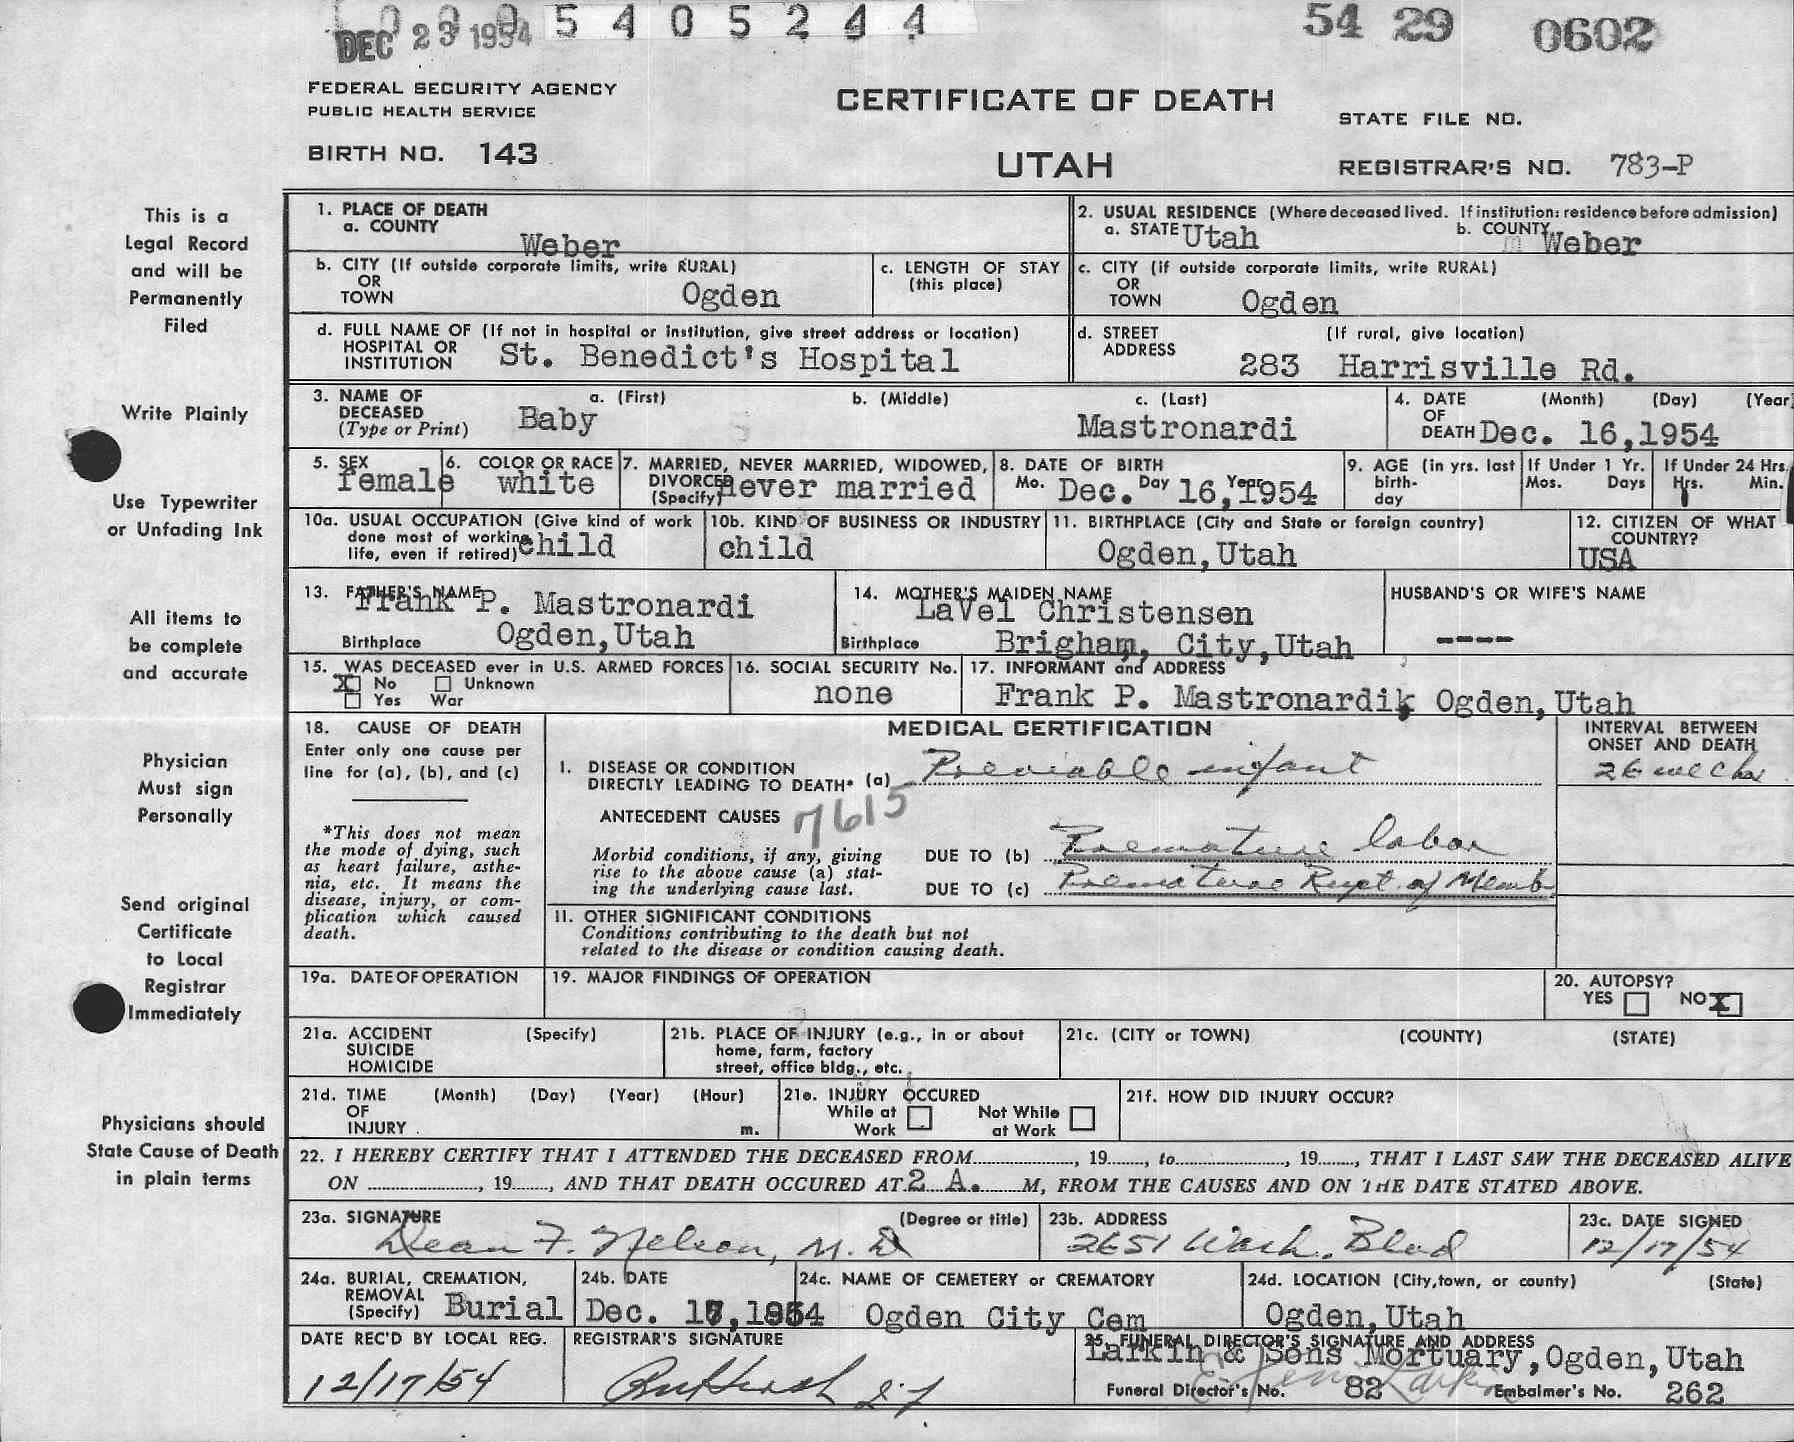 DEC 23 1954 5405244 54 29 0602
FEDERAL SECURITY AGENCY
PUBLIC HEALTH SERVICE
CERTIFICATE OF DEATH
STATE FILE NO.
BIRTH NO. 143
UTAH
REGISTRAR'S NO. 783-P
This is a
Legal Record
and will be
Permanently
Filed
Write Plainly
Use Typewriter
or Unfading Ink
All items to
be complete
and accurate
Physician
Must sign
Personally
Send original
Certificate
to Local
Registrar
Immediately
Physicians should
State Cause of Death
in plain terms
1. PLACE OF DEATH
a. COUNTY Weber
2. USUAL RESIDENCE (Where deceased lived. If institution: residence before admission)
a. STATE Utah b. COUNTY Weber
b. CITY (If outside corporate limits, write RURAL)
OR
TOWN Ogden
c. LENGTH OF STAY
(this place)
c. CITY (if outside corporate limits, write RURAL)
OR
TOWN Ogden
d. FULL NAME OF (If not in hospital or institution, give street address or location)
HOSPITAL OR
INSTITUTION St. Benedict's Hospital
d. STREET (If rural, give location)
ADDRESS 283 Harrisville Rd.
3. NAME OF a. (First) b. (Middle) c. (Last)
DECEASED
(Type or Print) Baby Mastronardi
4. DATE (Month) (Day) (Year)
OF
DEATH Dec. 16,1954
5. SEX
female
6. COLOR OR RACE
white
7. MARRIED, NEVER MARRIED, WIDOWED,
DIVORCED
(Specify) never married
8. DATE OF BIRTH
Mo. Dec. Day 16, Year 1954
9. AGE (in yrs. last
birth-
day
If Under 1 Yr.
Mos. Days
If Under 24 Hrs.
Hrs. Min.
10a. USUAL OCCUPATION (Give kind of work
done most of working
life, even if retired) child
10b. KIND OF BUSINESS OR INDUSTRY
child
11. BIRTHPLACE (City and State or foreign country)
Ogden,Utah
12. CITIZEN OF WHAT
COUNTRY?
USA
13. FATHER'S NAME
Frank P. Mastronardi
Birthplace Ogden,Utah
14. MOTHER'S MAIDEN NAME
LaVel Christensen
Birthplace Brigham, City,Utah
HUSBAND'S OR WIFE'S NAME
----
15. WAS DECEASED ever in U.S. ARMED FORCES
X No Unknown
Yes War
16. SOCIAL SECURITY No.
none
17. INFORMANT and ADDRESS
Frank P. Mastronardi, Ogden,Utah
18. CAUSE OF DEATH
Enter only one cause per
line for (a), (b), and (c)
*This does not mean
the mode of dying, such
as heart failure, asthe-
nia, etc. It means the
disease, injury, or com-
plication which caused
death.
MEDICAL CERTIFICATION
INTERVAL BETWEEN
ONSET AND DEATH
I. DISEASE OR CONDITION
DIRECTLY LEADING TO DEATH* (a) Previable infant
26
ANTECEDENT CAUSES 7615
Morbid conditions, if any, giving
rise to the above cause (a) stat-
ing the underlying cause last.
DUE TO (b) Premature labor
DUE TO (c) Premature Rupt. of Memb
II. OTHER SIGNIFICANT CONDITIONS
Conditions contributing to the death but not
related to the disease or condition causing death.
19a. DATE OF OPERATION
19. MAJOR FINDINGS OF OPERATION
20. AUTOPSY?
YES NO X
21a. ACCIDENT (Specify)
SUICIDE
HOMICIDE
21b. PLACE OF INJURY (e.g., in or about
home, farm, factory
street, office bldg., etc.
21c. (CITY or TOWN) (COUNTY) (STATE)
21d. TIME (Month) (Day) (Year) (Hour)
OF
INJURY m.
21e. INJURY OCCURED
While at Work Not While at Work
21f. HOW DID INJURY OCCUR?
22. I HEREBY CERTIFY THAT I ATTENDED THE DECEASED FROM..., 19..., to..., 19..., THAT I LAST SAW THE DECEASED ALIVE
ON ..., 19..., AND THAT DEATH OCCURED AT 2 A. M, FROM THE CAUSES AND ON THE DATE STATED ABOVE.
23a. SIGNATURE (Degree or title)
Dean F. Nelson, M.D
23b. ADDRESS
2651 Wash. Blvd
23c. DATE SIGNED
12/17/54
24a. BURIAL, CREMATION,
REMOVAL
(Specify) Burial
24b. DATE
Dec. 17,1954
24c. NAME OF CEMETERY or CREMATORY
Ogden City Cem
24d. LOCATION (City,town, or county) (State)
Ogden,Utah
DATE REC'D BY LOCAL REG.
12/17/54
REGISTRAR'S SIGNATURE
25. FUNERAL DIRECTOR'S SIGNATURE AND ADDRESS
Larkin & Sons Mortuary,Ogden,Utah
Funeral Director's No. 82 Embalmer's No. 262